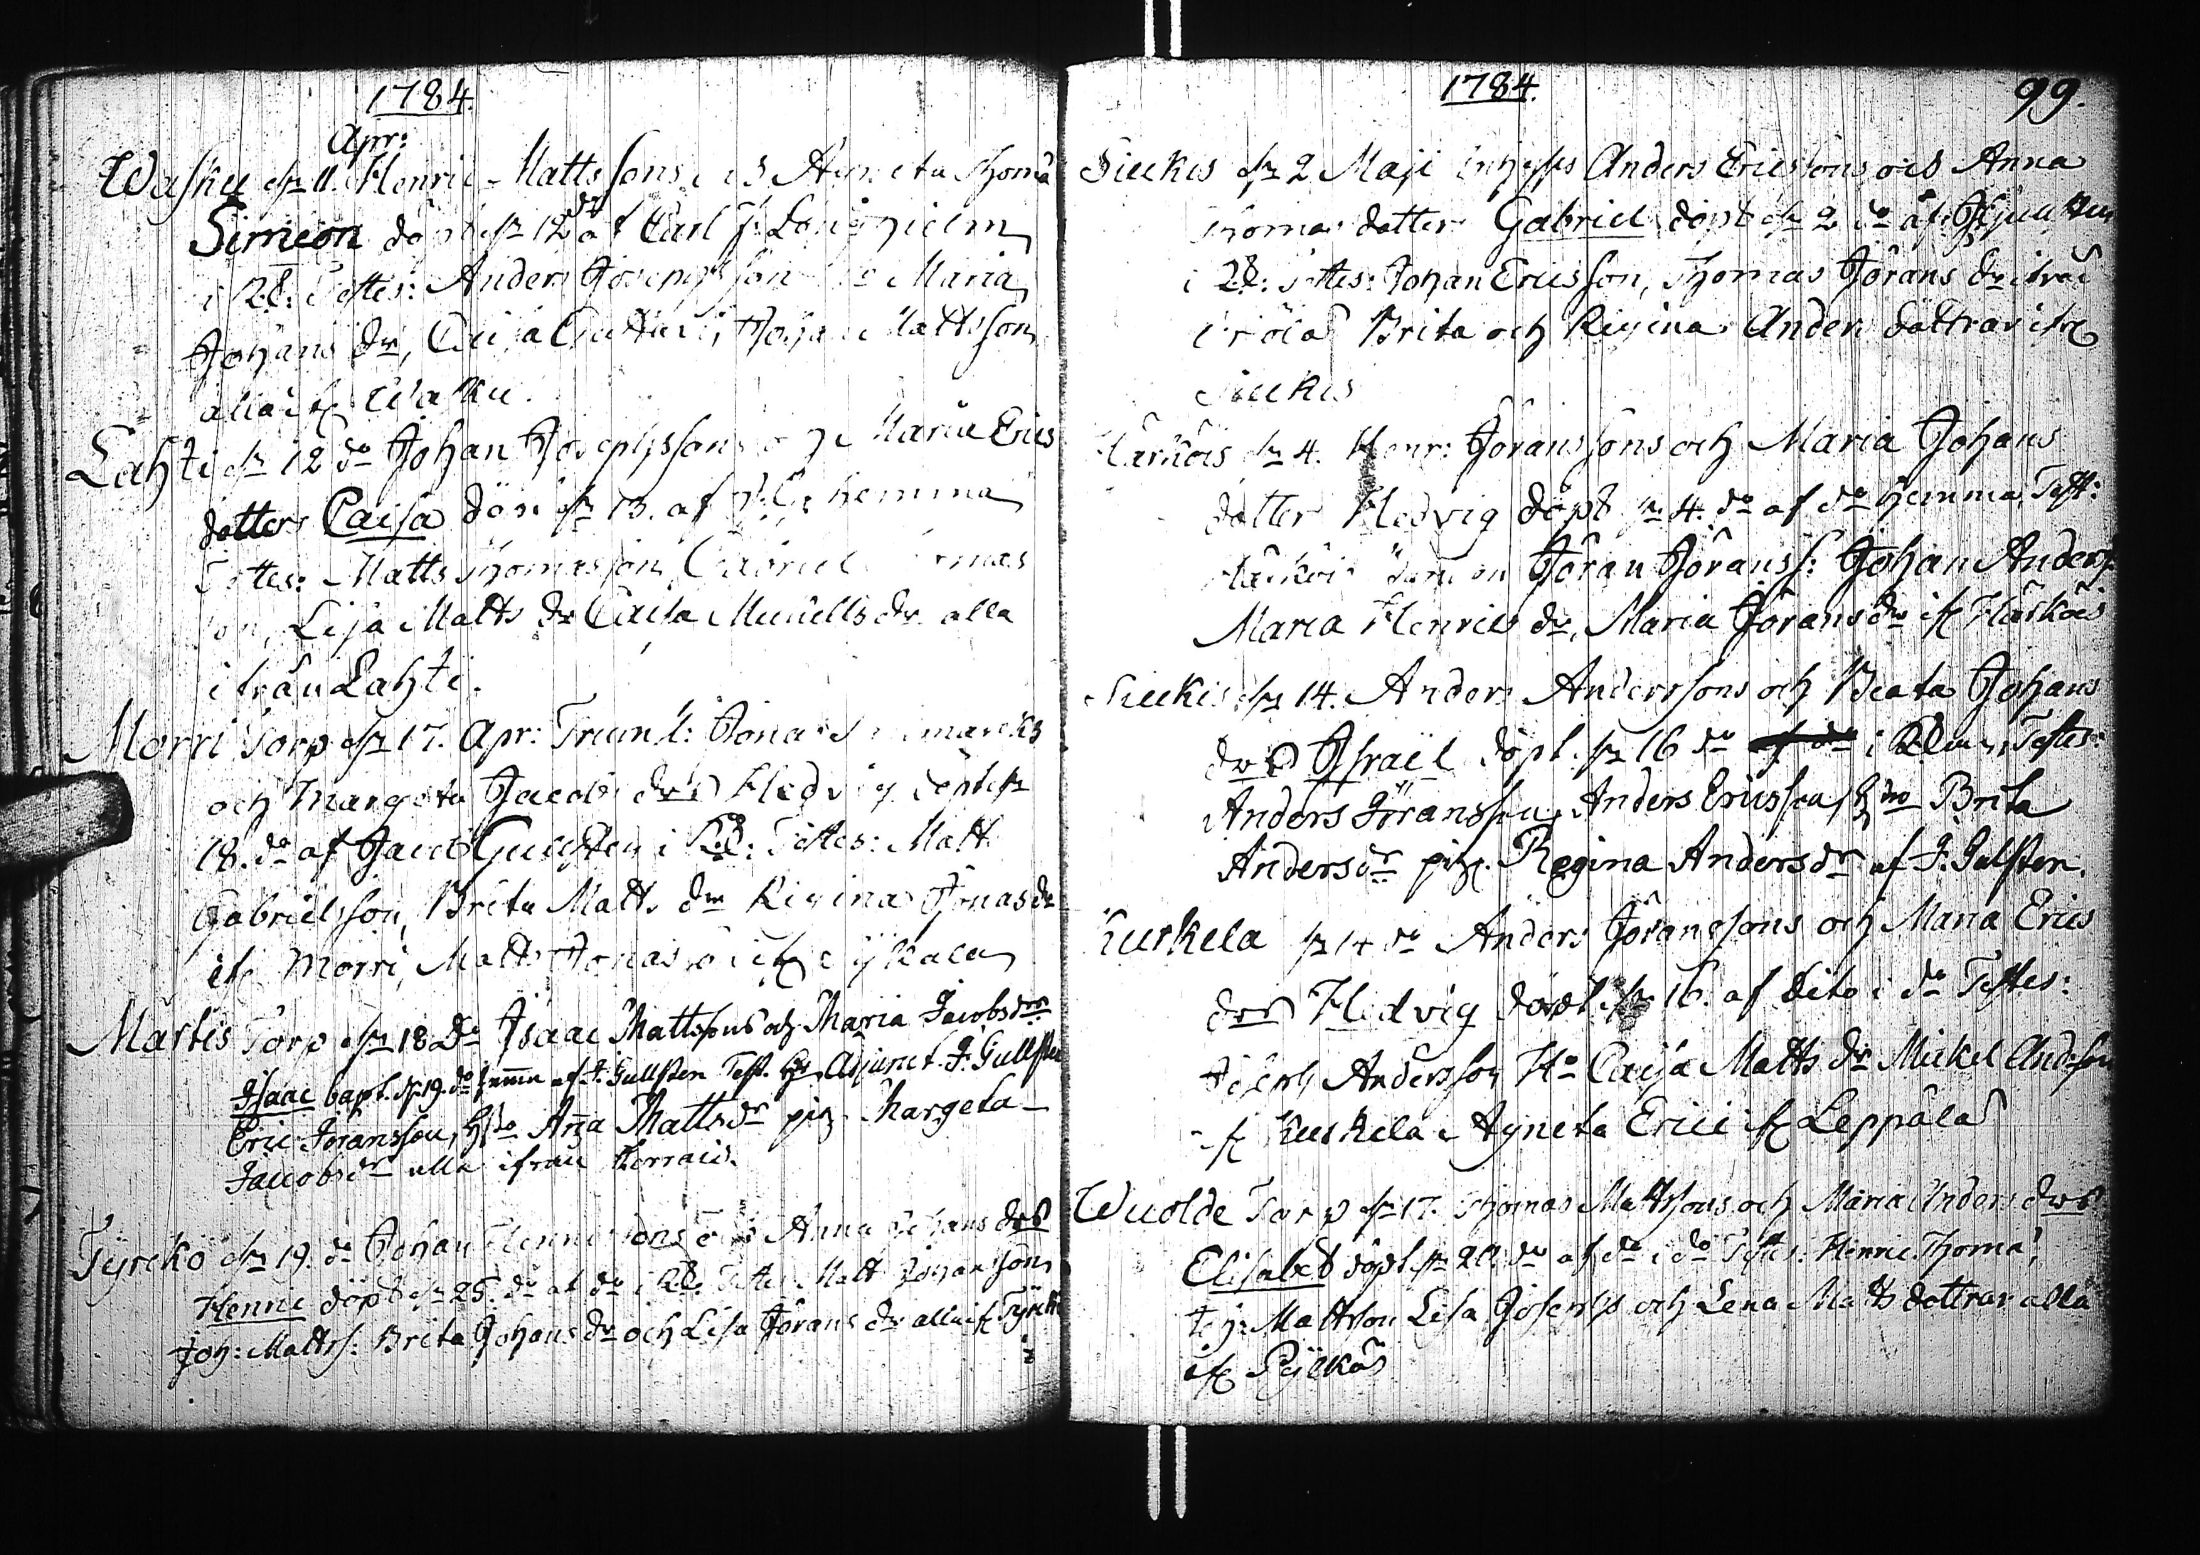 1784.
Apr:
Wasku d. 11. Henric Mattssons Agneta Thomæ
Simeon döpt d. 12 do af Carl Longhielm
i Kk: Testes: Anders Josephsson Maria
Johans dr, Caisa Johan Mattsson
alla ifr Wasku.
Lahti d. 12 do Johan Josephssons och Maria Erics
dotters Caisa döpt d. 13. af hemma
Testes: Matts Thomasson, Gabriel Thomas
son, Lisa Matts dr Caisa Michells dr alla
ifrån Lahti.
Morri Torp d. 17. Apr: Trump: Jonas
och Margeta Jacobs drs Hedvig döpt d.
18. do af Jacob Gullsten i Kk: Testes: Matts
Gabrielsson, Brita Matts dr Regina Jonas dr
ifr Morri, Matts Jonass. ifr
Martis Torp d. 18 do Isaac Mattssons och Maria Jacobsdrs
Isaac bapt. d. 19. do hemma af J. Gullsten Test. Hr Adjunct. J. Gullsten
Eric Göransson, hust. Anna Matts dr pig. Margeta
Jacobs dr alla ifrån
Tyrckö d. 19. do Johan Henricssons och Anna Johans drs
Henric döpt d. 25. do af do i Kk. Testes Matts Johansson
Joh: Mattss: Brita Johans dr och Lisa Jörans dr alla ifr Tyrckö
1784. 99.
Sieckis d. 2 Maji Inhyses Anders Ericssons och Anna
Thomas dotter Gabriel döpt d. 2 do af J. Gullsten
i Kk: Testes: Johan Ericsson, Thomas Jörans dr ifrån
Brita och Regina Anders döttrar ifr
Sieckis
Härköis d. 4. Henr: Joranssons och Maria Johans
dotter Hedvig döpt d. 4. do af do hemma, Test:
Härköis Jöran Jöranss: Johan Anderss.
Maria Henrics dr, Maria Jörans dr ifr Härköis
Sieckis d. 14. Anders Anderssons och Beata Johans
drs Israël döpt d. 16 do i Kkan, Testes:
Anders Göransson, Anders Ericsson, hust. Brita
Anders dr pig. Regina Anders dr af J. Gulsten.
Kurkela d. 14 do Anders Joranssons och Maria Erics
drs Hedvig döpt d. 16. af dito i do Testes:
Joseph Andersson Hu Caisa Matts dr Mickel Andersson
ifr Kurkela, Agneta Erici ifr Leppälä
Wuolde Torp d. 17. Thomas Mattssons och Maria Anders drs
Elisabet döpt d. 20. do af do i do Testes: Henric Thomæ,
Joh: Mattsson Lisa Josephs och Lena Matts döttrar alla
ifr Pÿlkäs